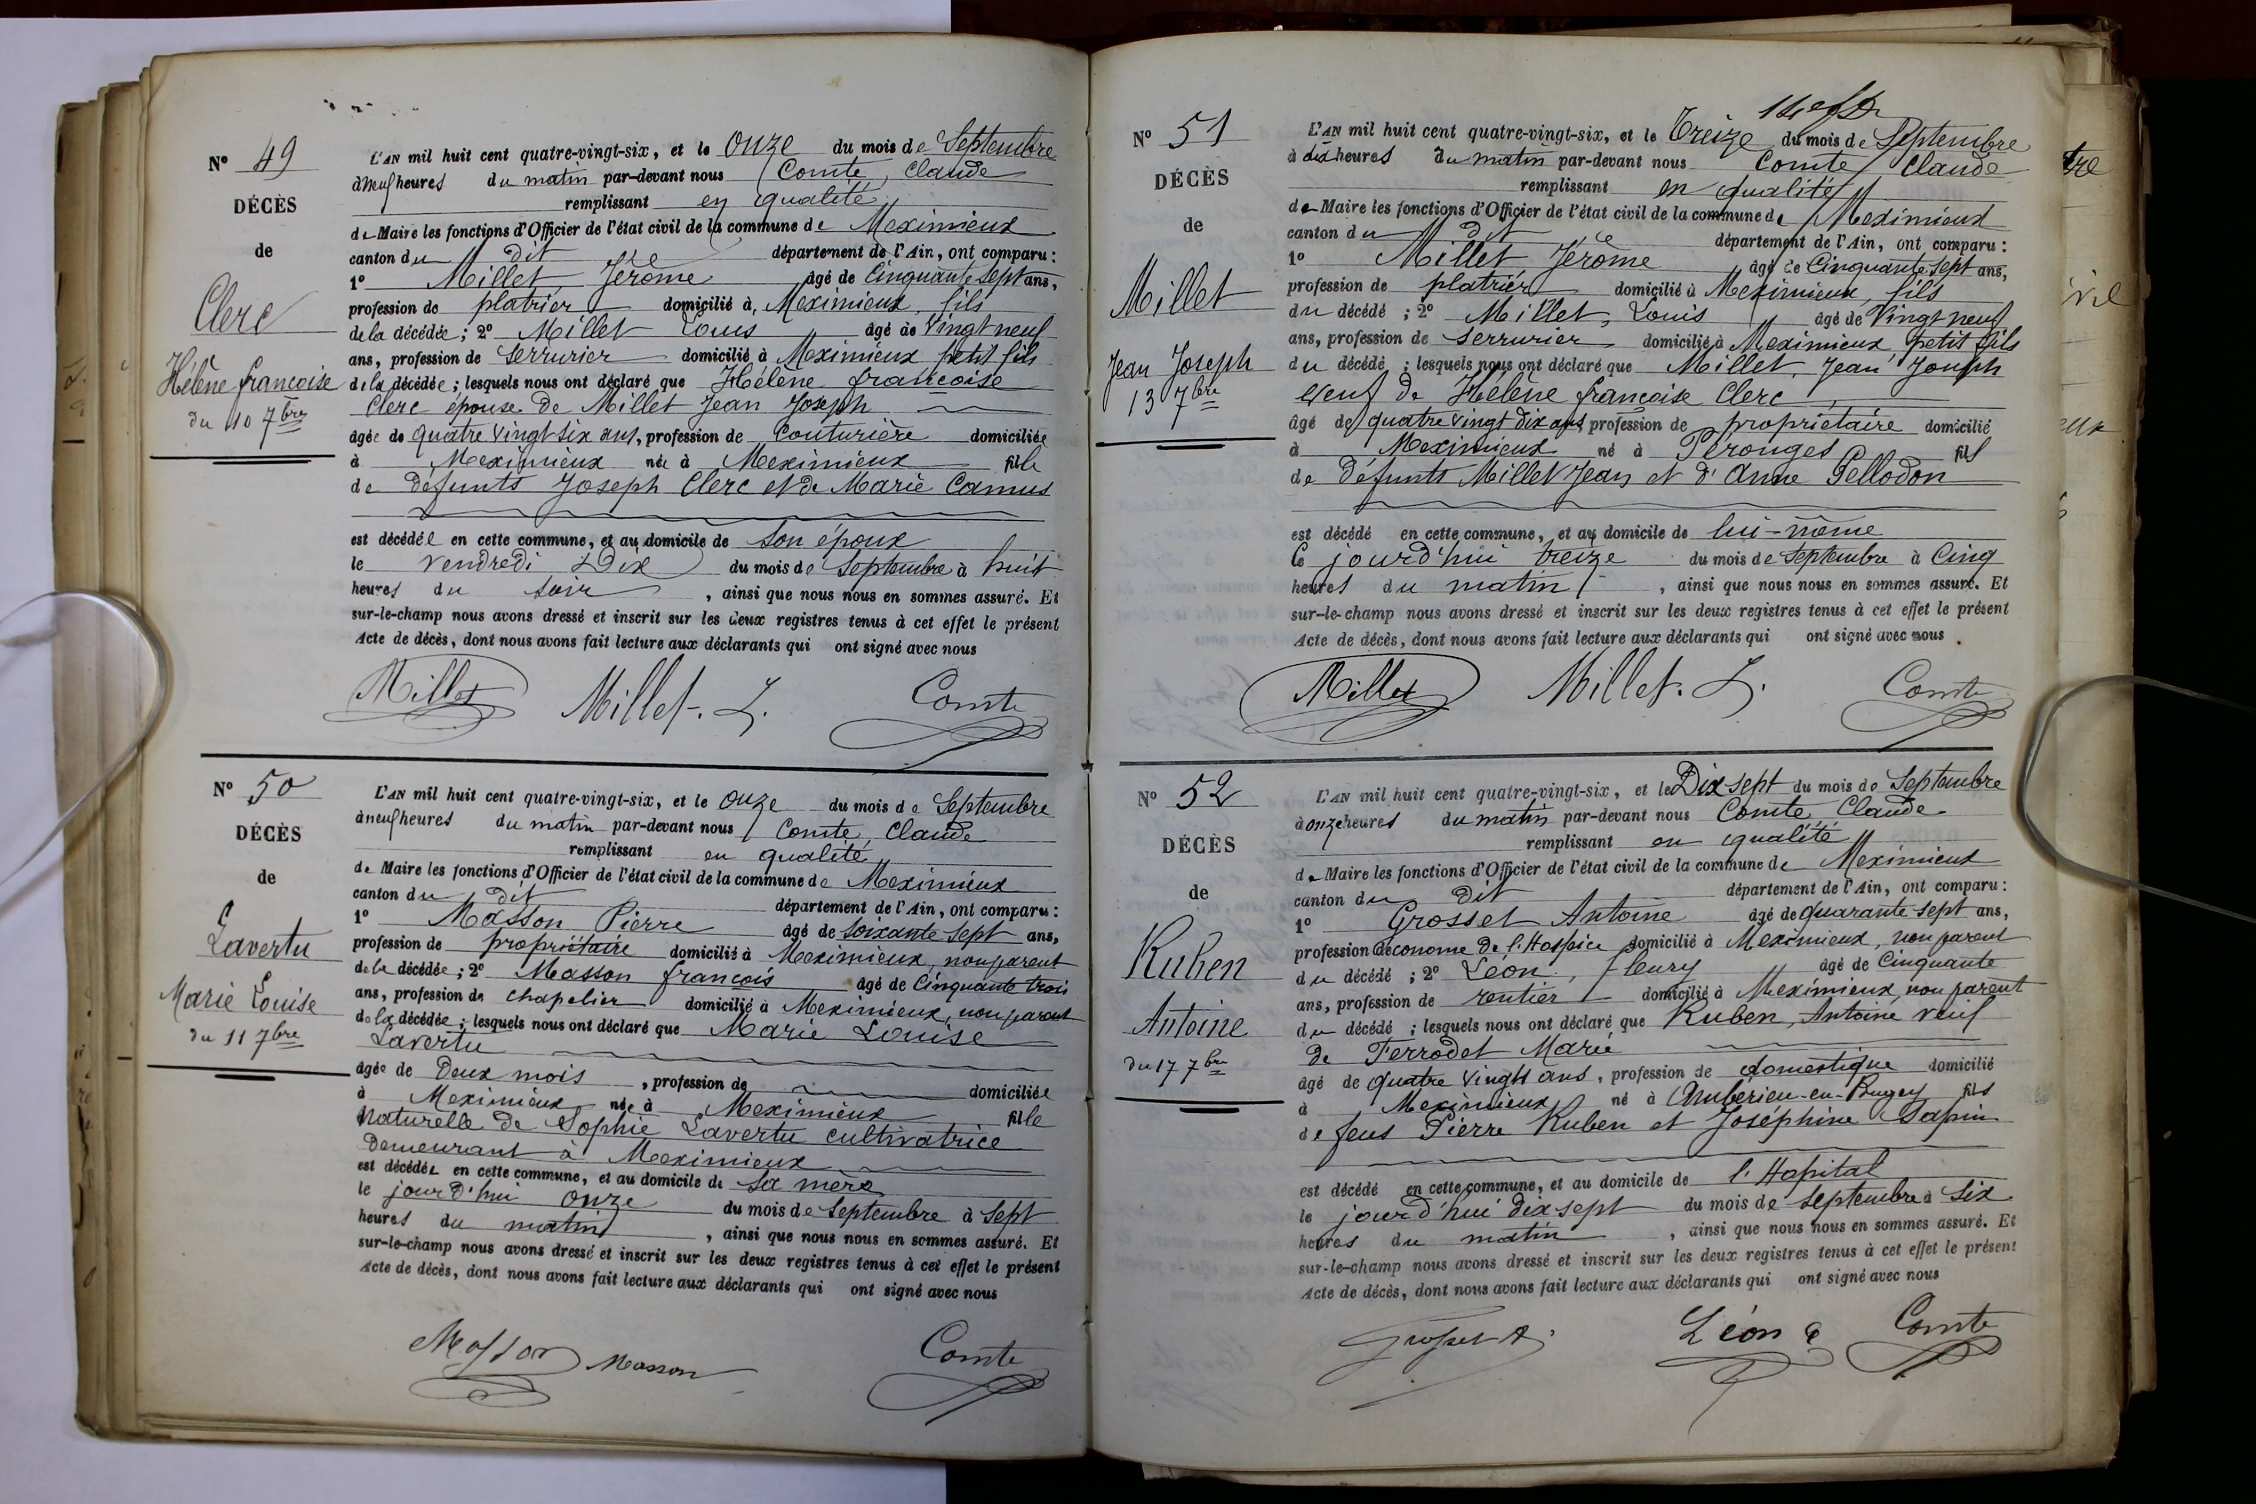 Nº 49
DÉCÈS
de
Clerc
Hélène francoise
du 10 7bre
L'AN mil huit cent quatre-vingt-six, et le Onze du mois de Septembre
à neuf heures du matin par-devant nous Comte, Claude
remplissant en qualité
de Maire les fonctions d'Officier de l'état civil de la commune de Meximieux
canton du dit département de l'Ain, ont comparu :
1º Millet Jérôme âgé de Cinquante sept ans,
profession de platrier domicilié à Meximieux, fils
de la décédée ; 2º Millet Louis âgé de Vingt neuf
ans, profession de Serrurier domicilié à Meximieux petit fils
de la décédée ; lesquels nous ont déclaré que Hélène francoise
Clerc épouse de Millet Jean Joseph
âgée de quatre vingt six ans, profession de Couturière domiciliée
à Meximieux née à Meximieux fille
de défunts Joseph Clerc et de Marie Camus
est décédée en cette commune, et au domicile de son époux
le vendredi Dix du mois de Septembre à huit
heures du soir, ainsi que nous nous en sommes assuré. Et
sur-le-champ nous avons dressé et inscrit sur les deux registres tenus à cet effet le présent
Acte de décès, dont nous avons fait lecture aux déclarants qui ont signé avec nous
Millet Millet. L. Comte
Nº 50
DÉCÈS
de
Lavertu
Marie Louise
du 11 7bre
L'AN mil huit cent quatre-vingt-six, et le onze du mois de Septembre
à neuf heures du matin par-devant nous Comte, Claude
remplissant en qualité
de Maire les fonctions d'Officier de l'état civil de la commune de Meximieux
canton du dit département de l'Ain, ont comparu :
1º Masson Pierre âgé de soixante sept ans,
profession de propriétaire domicilié à Meximieux, non parent
de la décédée ; 2º Masson françois âgé de Cinquante trois
ans, profession de chapelier domicilié à Meximieux, non parent
de la décédée ; lesquels nous ont déclaré que Marie Louise
Lavertu
âgée de Deux mois, profession de domiciliée
à Meximieux née à Meximieux fille
Naturelle de Sophie Lavertu cultivatrice
Demeurant à Meximieux
est décédée en cette commune, et au domicile de sa mère
le jourd'hui onze du mois de Septembre à sept
heures du matin, ainsi que nous nous en sommes assuré. Et
sur-le-champ nous avons dressé et inscrit sur les deux registres tenus à cet effet le présent
Acte de décès, dont nous avons fait lecture aux déclarants qui ont signé avec nous
Masson Masson Comte
Nº 51
DÉCÈS
de
Millet
Jean Joseph
13 7bre
L'AN mil huit cent quatre-vingt-six, et le Treize du mois de Septembre
à dix heures du matin par-devant nous Comte Claude
remplissant en qualité
de Maire les fonctions d'Officier de l'état civil de la commune de Meximieux
canton du dit département de l'Ain, ont comparu :
1º Millet Jérôme âgé de Cinquante sept ans,
profession de platrier domicilié à Meximieux, fils
du décédé ; 2º Millet, Louis âgé de Vingt neuf
ans, profession de serrurier domicilié à Meximieux petit fils
du décédé ; lesquels nous ont déclaré que Millet, Jean Joseph
veuf de Hélène françoise Clerc
âgé de quatre vingt dix ans, profession de propriétaire domicilié
à Meximieux né à Pérouges fils
de défunts Millet Jean et d'Anne Pellodon
est décédé en cette commune, et au domicile de lui-même
le jourd'hui treize du mois de septembre à Cinq
heures du matin, ainsi que nous nous en sommes assuré. Et
sur-le-champ nous avons dressé et inscrit sur les deux registres tenus à cet effet le présent
Acte de décès, dont nous avons fait lecture aux déclarants qui ont signé avec nous.
Millet Millet. L. Comte
Nº 52
DÉCÈS
de
Kuben
Antoine
du 17 7bre
L'AN mil huit cent quatre-vingt-six, et le Dix sept du mois de Septembre
à onze heures du matin par-devant nous Comte, Claude
remplissant en qualité
de Maire les fonctions d'Officier de l'état civil de la commune de Meximieux
canton du dit département de l'Ain, ont comparu :
1º Grosset Antoine âgé de quarante sept ans,
profession d'économe de l'Hospice domicilié à Meximieux, non parent
du décédé ; 2º Léon, fleury âgé de Cinquante
ans, profession de rentier domicilié à Meximieux, non parent
du décédé ; lesquels nous ont déclaré que Kuben, Antoine veuf
de Ferrodet Marie
âgé de quatre vingts ans, profession de domestique domicilié
à Meximieux né à Ambérieu-en-Bugey fils
de feus Pierre Kuben et Joséphine Sapin
est décédé en cette commune, et au domicile de l'Hopital
le jourd'hui dix sept du mois de septembre à six
heures du matin, ainsi que nous nous en sommes assuré. Et
sur-le-champ nous avons dressé et inscrit sur les deux registres tenus à cet effet le présent
Acte de décès, dont nous avons fait lecture aux déclarants qui ont signé avec nous
Grosset A. Léon Comte